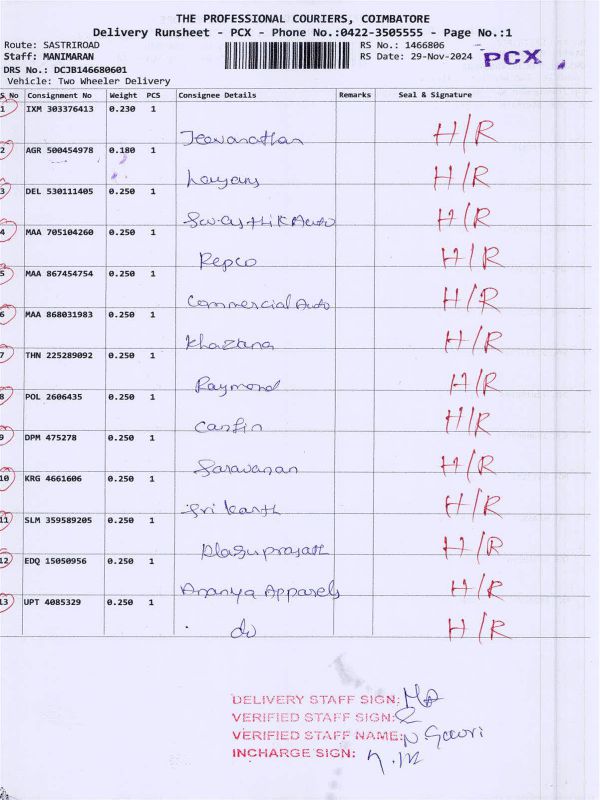 THE PROFESSIONAL COURIERS, COIMBATORE
Delivery Runsheet - PCX - Phone No.:0422-3505555 - Page No.:1
Route: SASTRIROAD RS No.: 1466806
Staff: MANIMARAN RS Date: 29-Nov-2024 PCX
DRS No.: DCJB146680601
Vehicle: Two Wheeler Delivery
S No Consignment No Weight PCS Consignee Details Remarks Seal & Signature
1 IXM 303376413 0.230 1
Jeevanathan H/R
2 AGR 500454978 0.180 1
H/R
3 DEL 530111405 0.250 1
Swasthik Auto H/R
4 MAA 705104260 0.250 1
Repco H/R
5 MAA 867454754 0.250 1
Commercial Auto H/R
6 MAA 868031983 0.250 1
Khazana H/R
7 THN 225289092 0.250 1
Raymond H/R
8 POL 2606435 0.250 1
Canfin H/R
9 DPM 475278 0.250 1
Saravanan H/R
10 KRG 4661606 0.250 1
Sri Kanth H/R
11 SLM 359589205 0.250 1
H/R
12 EDQ 15050956 0.250 1
Ananya Apparels H/R
13 UPT 4085329 0.250 1
do H/R
DELIVERY STAFF SIGN:
VERIFIED STAFF SIGN:
VERIFIED STAFF NAME: N Gowri
INCHARGE SIGN: